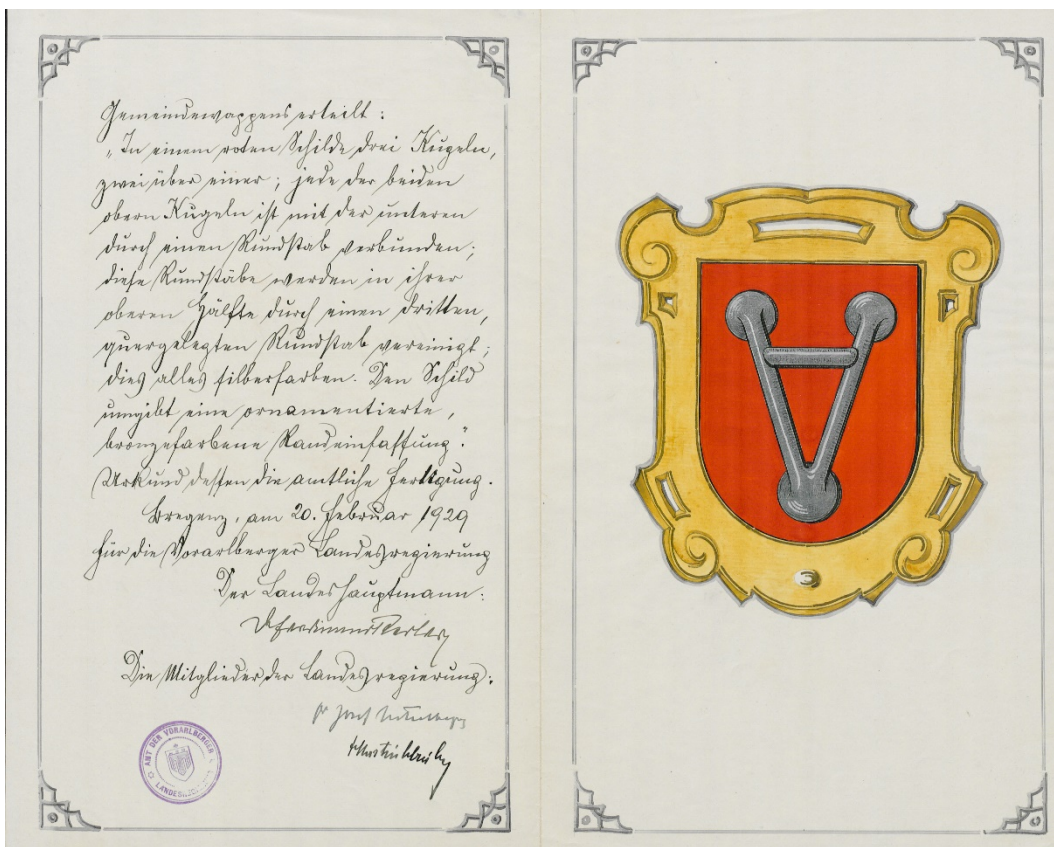 Gemeindewappens erteilt:
„In einem roten Schilde drei Kugeln,
zwei über einer; jede der beiden
obern Kugeln ist mit der unteren
durch einen Rundstab verbunden;
diese Rundstäbe werden in ihrer
oberen Hälfte durch einen dritten,
quergelegten Rundstab vereinigt;
dies alles silberfarben. Den Schild
umgibt eine ornamentierte,
bronzefarbene Randeinfassung".
Urkund dessen die amtliche Fertigung.
Bregenz, am 20. Februar 1929
für die Vorarlberger Landesregierung
Der Landeshauptmann:
Die Mitglieder der Landesregierung:
AMT DER VORARLBERGER